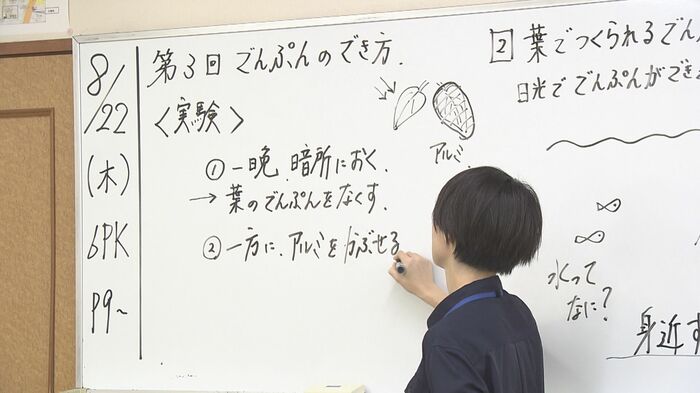 8/22
(木)
6PK
P9~
第3回 でんぷんのでき方.
<実験>
① 一晩 暗所におく.
→ 葉のでんぷんをなくす.
② 一方に、アルミをかぶせる
アルミ
2 葉でつくられるでん
日光で でんぷんができ
水って
なに?
身近す